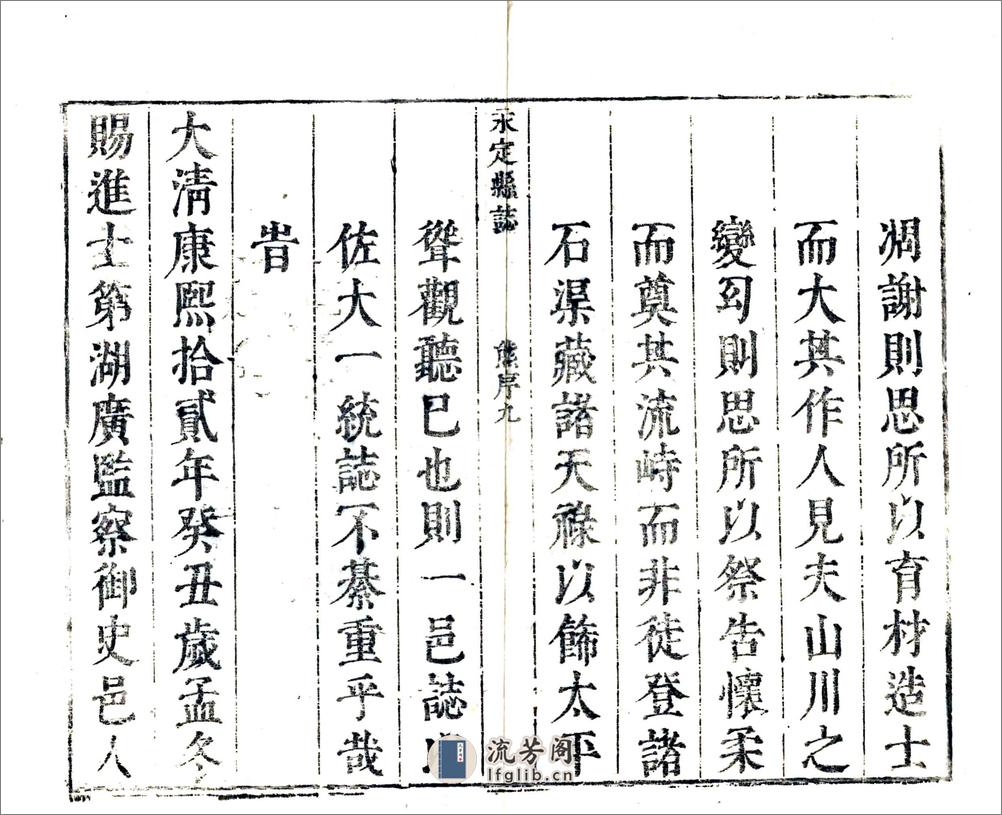 凋謝則思所以育材造士
而大其作人見夫山川之
變幻則思所以祭告懷柔
而奠其流峙而非徒登諸
石渠藏諸天祿以飾太平
永定縣誌
熊序九
聳觀聽已也則一邑誌
佐大一統誌不綦重乎哉
旹
大清康熙拾貳年癸丑歲孟冬
賜進士第湖廣監察御史邑人
流芳阁
lfglib.cn